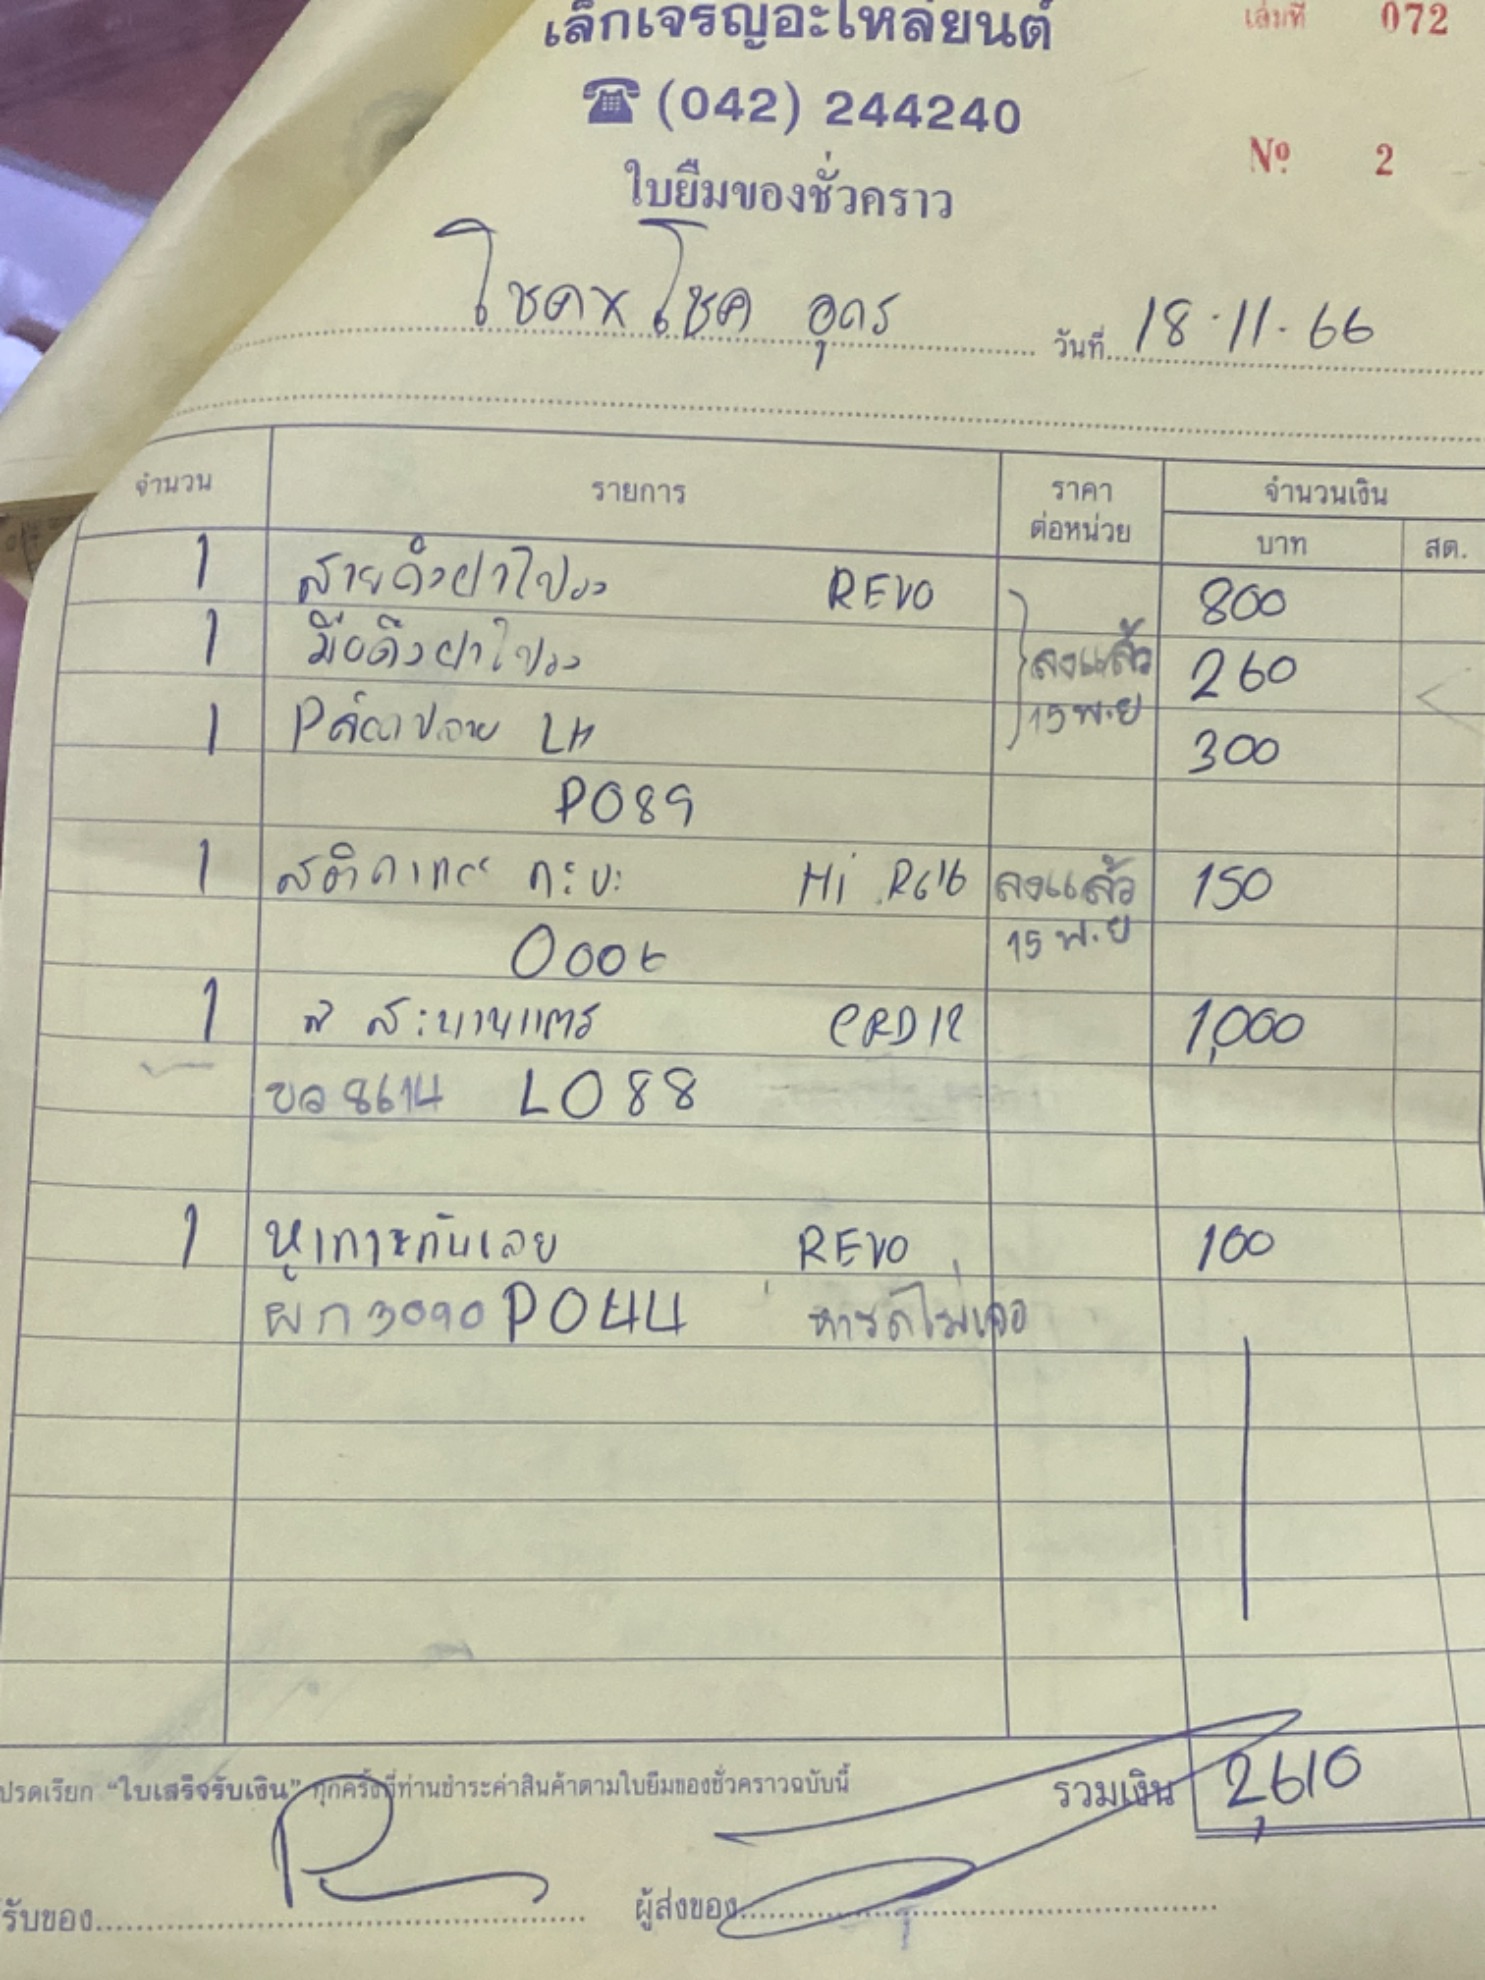 เล็กเจริญอะไหล่ยนต์
เล่มที่ 072
☎ (042) 244240
ใบยืมของชั่วคราว
Nº 2
โชคxโชค อุดร วันที่ 18.11.66
จำนวน รายการ ราคาต่อหน่วย จำนวนเงิน
บาท สต.
1 สายดึงฝาโปรง REVO 800
1 มือดึงฝาโปรง ลงแล้ว 260
1 LH 15 พ.ย 300
P089
1 สติกเกอร์ กะบะ Hi ลงแล้ว 150
15 พ.ย
1 1,000
8614 L088
1 REVO 100
ผก 3090 P044 หารถไม่เจอ
โปรดเรียก "ใบเสร็จรับเงิน" ทุกครั้งที่ท่านชำระค่าสินค้าตามใบยืมของชั่วคราวฉบับนี้
รวมเงิน 2,610
รับของ ผู้ส่งของ